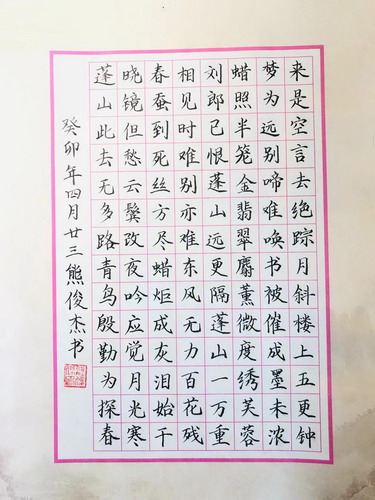 来是空言去绝踪月斜楼上五更钟
梦为远别啼难唤书被催成墨未浓
蜡照半笼金翡翠麝薰微度绣芙蓉
刘郎已恨蓬山远更隔蓬山一万重
相见时难别亦难东风无力百花残
春蚕到死丝方尽蜡炬成灰泪始干
晓镜但愁云鬓改夜吟应觉月光寒
蓬山此去无多路青鸟殷勤为探春
癸卯年四月廿三熊俊杰书